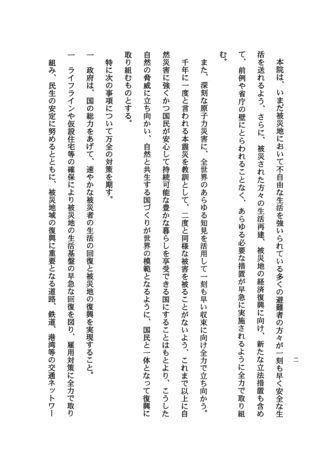 二
　本院は、いまだ被災地において不自由な生活を強いられている多くの避難者の方々が一刻も早く安全な生
活を送れるよう、さらに、被災された方々の生活再建、被災地の経済復興に向け、新たな立法措置も含め
て、前例や省庁の壁にとらわれることなく、あらゆる必要な措置が早急に実施されるように全力で取り組
む。
　また、深刻な原子力災害に、全世界のあらゆる知見を活用して一刻も早い収束に向け全力で立ち向かう。
　千年に一度と言われる本震災を教訓として、二度と同様な被害を被ることがないよう、これまで以上に自
然災害に強くかつ国民が安心して持続可能な豊かな暮らしを享受できる国にすることはもとより、こうした
自然の脅威に立ち向かい、自然と共生する国づくりが世界の模範となるように、国民と一体となって復興に
取り組むものとする。
　特に次の事項について万全の対策を期す。
一　政府は、国の総力をあげて、速やかな被災者の生活の回復と被災地の復興を実現すること。
一　ライフラインや仮設住宅等の確保により被災地の生活基盤の早急な回復を図り、雇用対策に全力で取り
組み、民生の安定に努めるとともに、被災地域の復興に重要となる道路、鉄道、港湾等の交通ネットワー